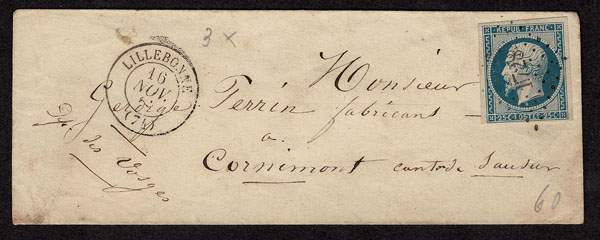 3 x
LILLEBONNE
16
NOV.
(74)
REPUB. FRANC.
25 c POSTES 25 c
Monsieur
Perrin fabricant
a
Cornimont canton de Saulxur
Dept des Vosges
60